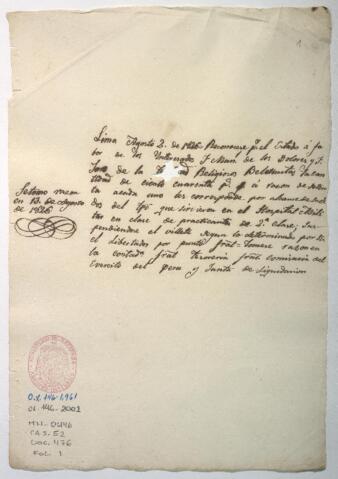 1
Lima Agosto 2. de 1826 Reconosese p.r el Estado á fa-
bor de los Interesados F. Man.l de los Dolores y F.
José de la Religiosos Belermitas la can-
tidad de ciento cuarenta p.s á razon de seten-
ta acada uno les corresponde por
dos del q.e sirvieron en el Hospital Milita-
r en clase de practicantes de 2.a clase;
pendiendose el villete segun lo determinado por
el Libertador por punto gral = Tomese razon en
la contad.a gral Tesoreria gral comisaria del
Exercito del Peru y Junta de Liquidacion
Se tomo razon
en 13 de Agosto
de 1826
O.L. 146-1961
01-146-2002
MH-0446
CAJ. 52
DOC. 476
FOL. 1